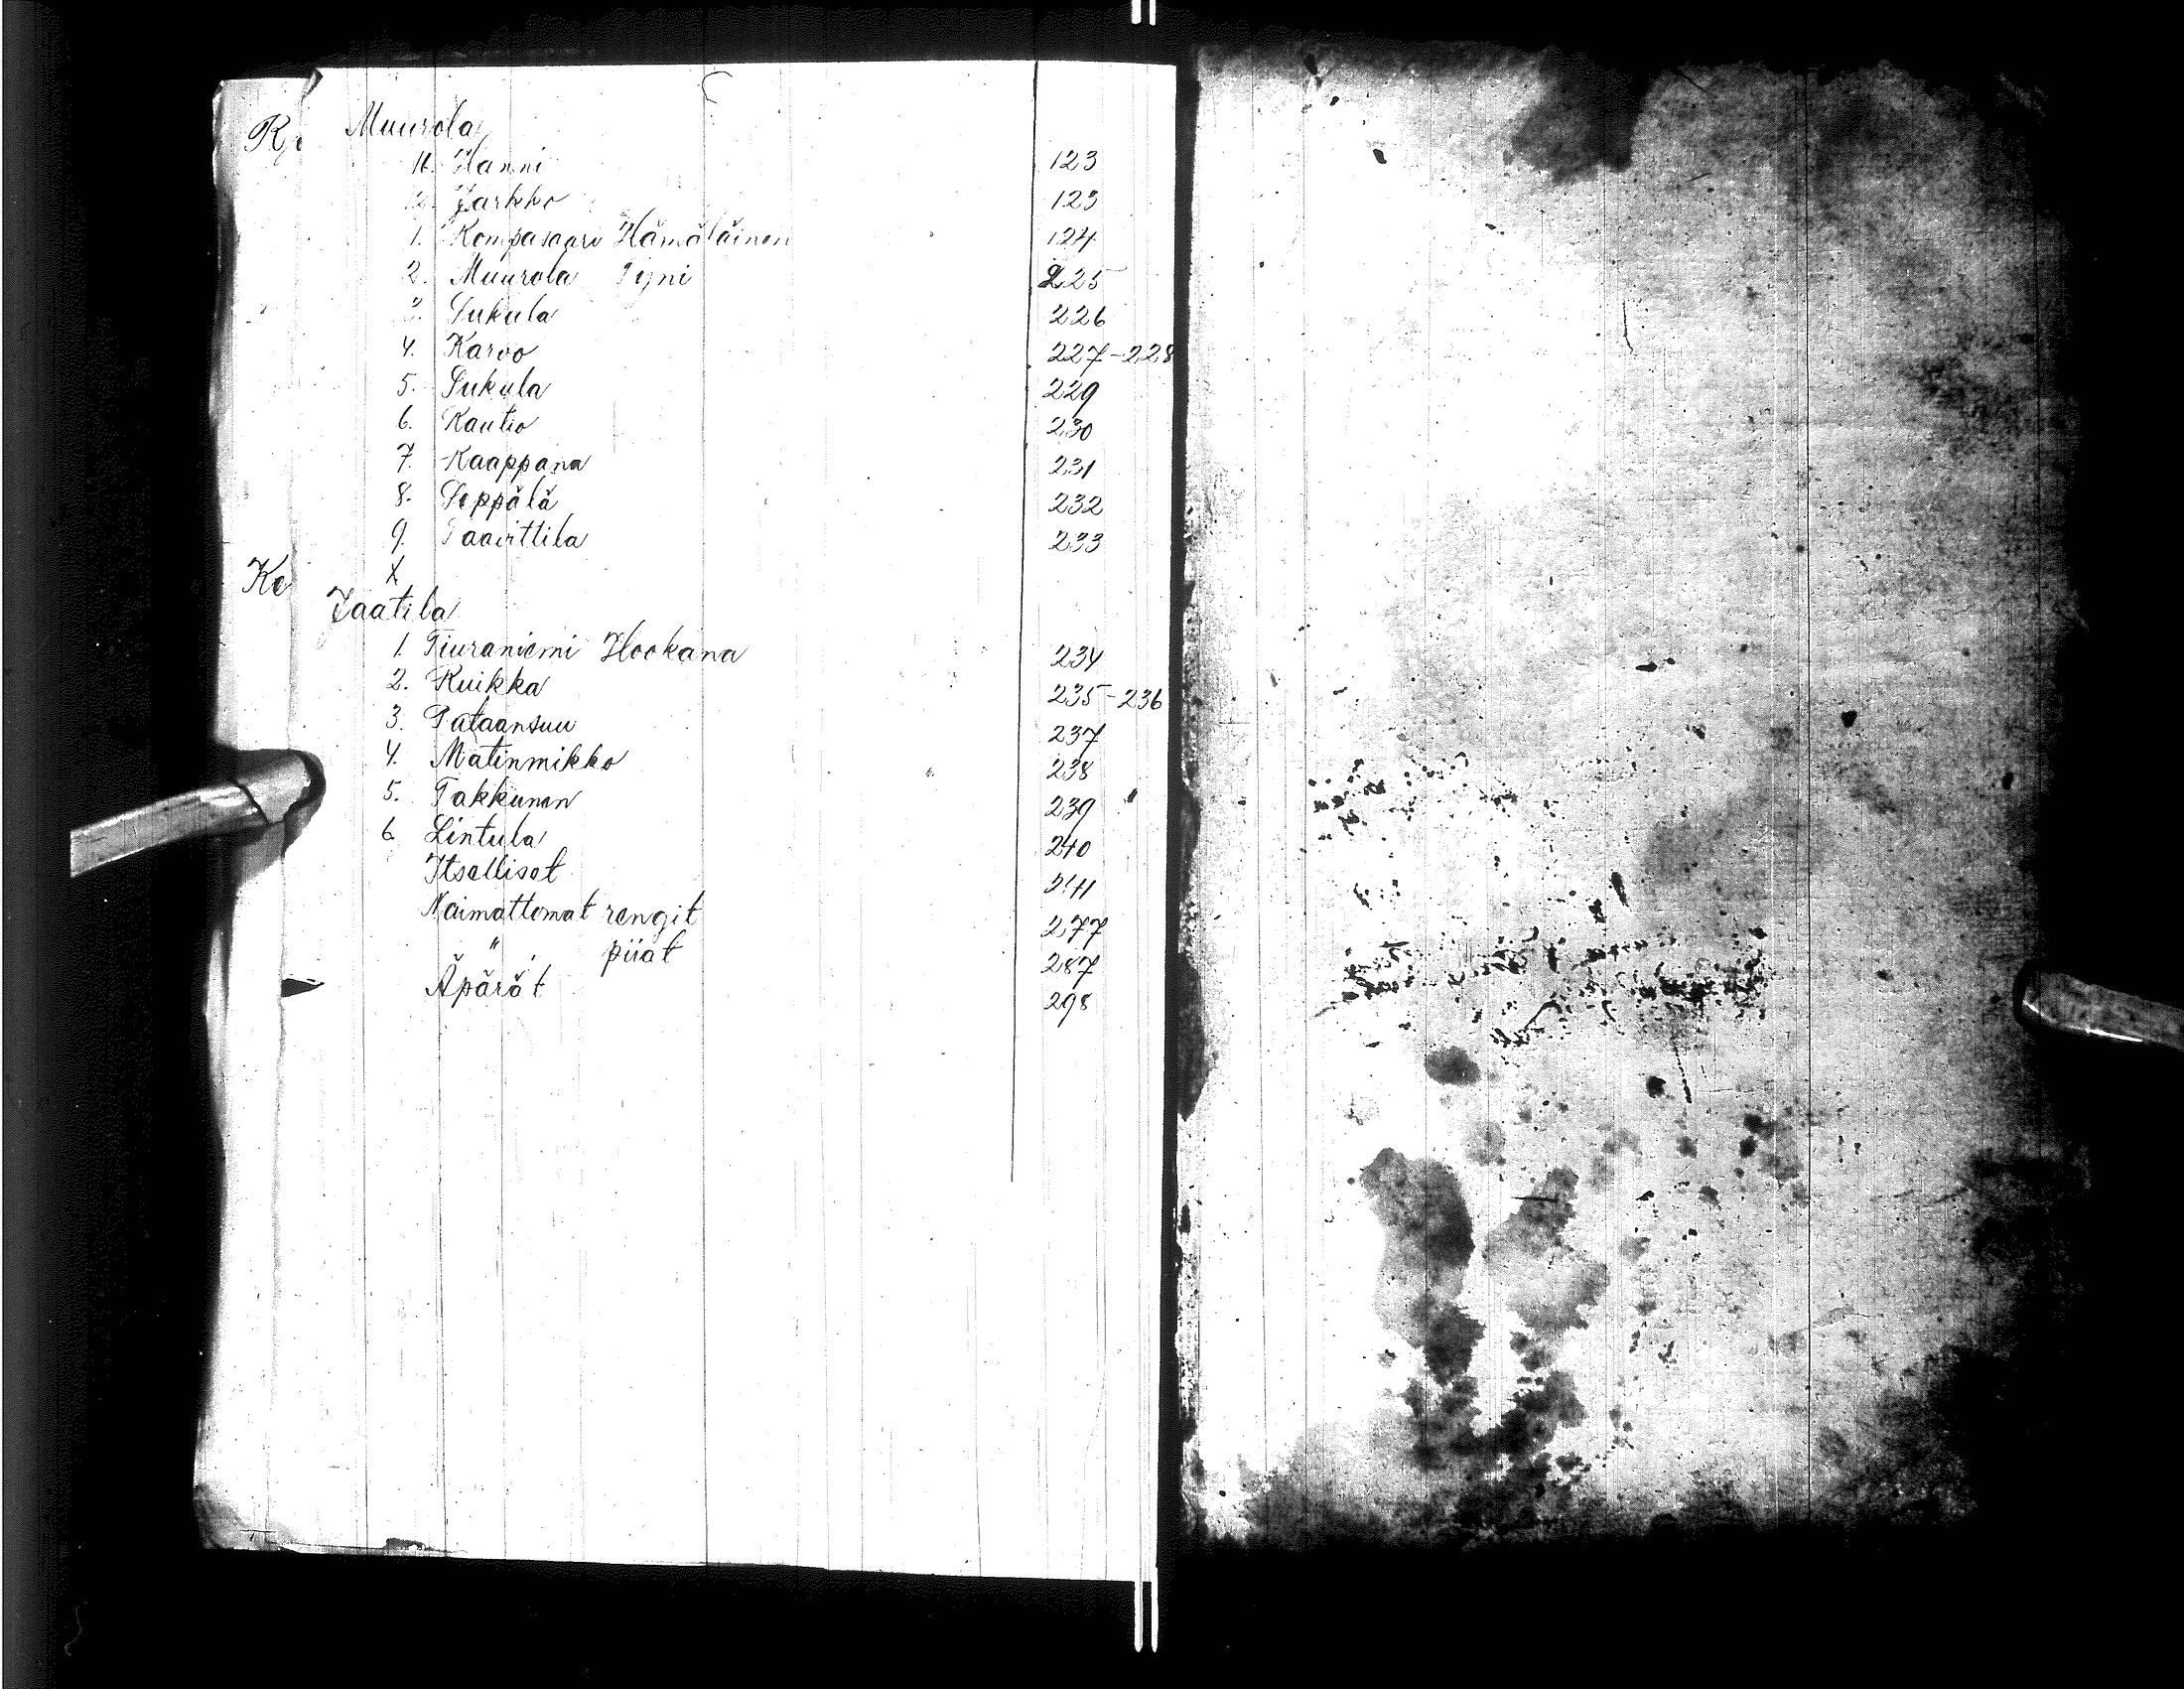 Muurola
11. Hanni 123
12. Jarkko 123
1. Kompasaari Hämäläinen 124
2. Muurola Pyni 225
3. Sukula 226
4. Karvo 227-228
5. Sukula 229
6. Kautio 230
7. Kaappana 231
8. Seppälä 232
9. Paavittila 233
X
Ke
Jaatila
1. Tiuraniemi Hookana 234
2. Kuikka 235-236
3. Pataansuu 237
4. Matinmikko 238
5. Takkunen 239
6. Lintula 240
Itselliset 241
Naimattomat rengit 277
" piiat 287
Äpärät 298